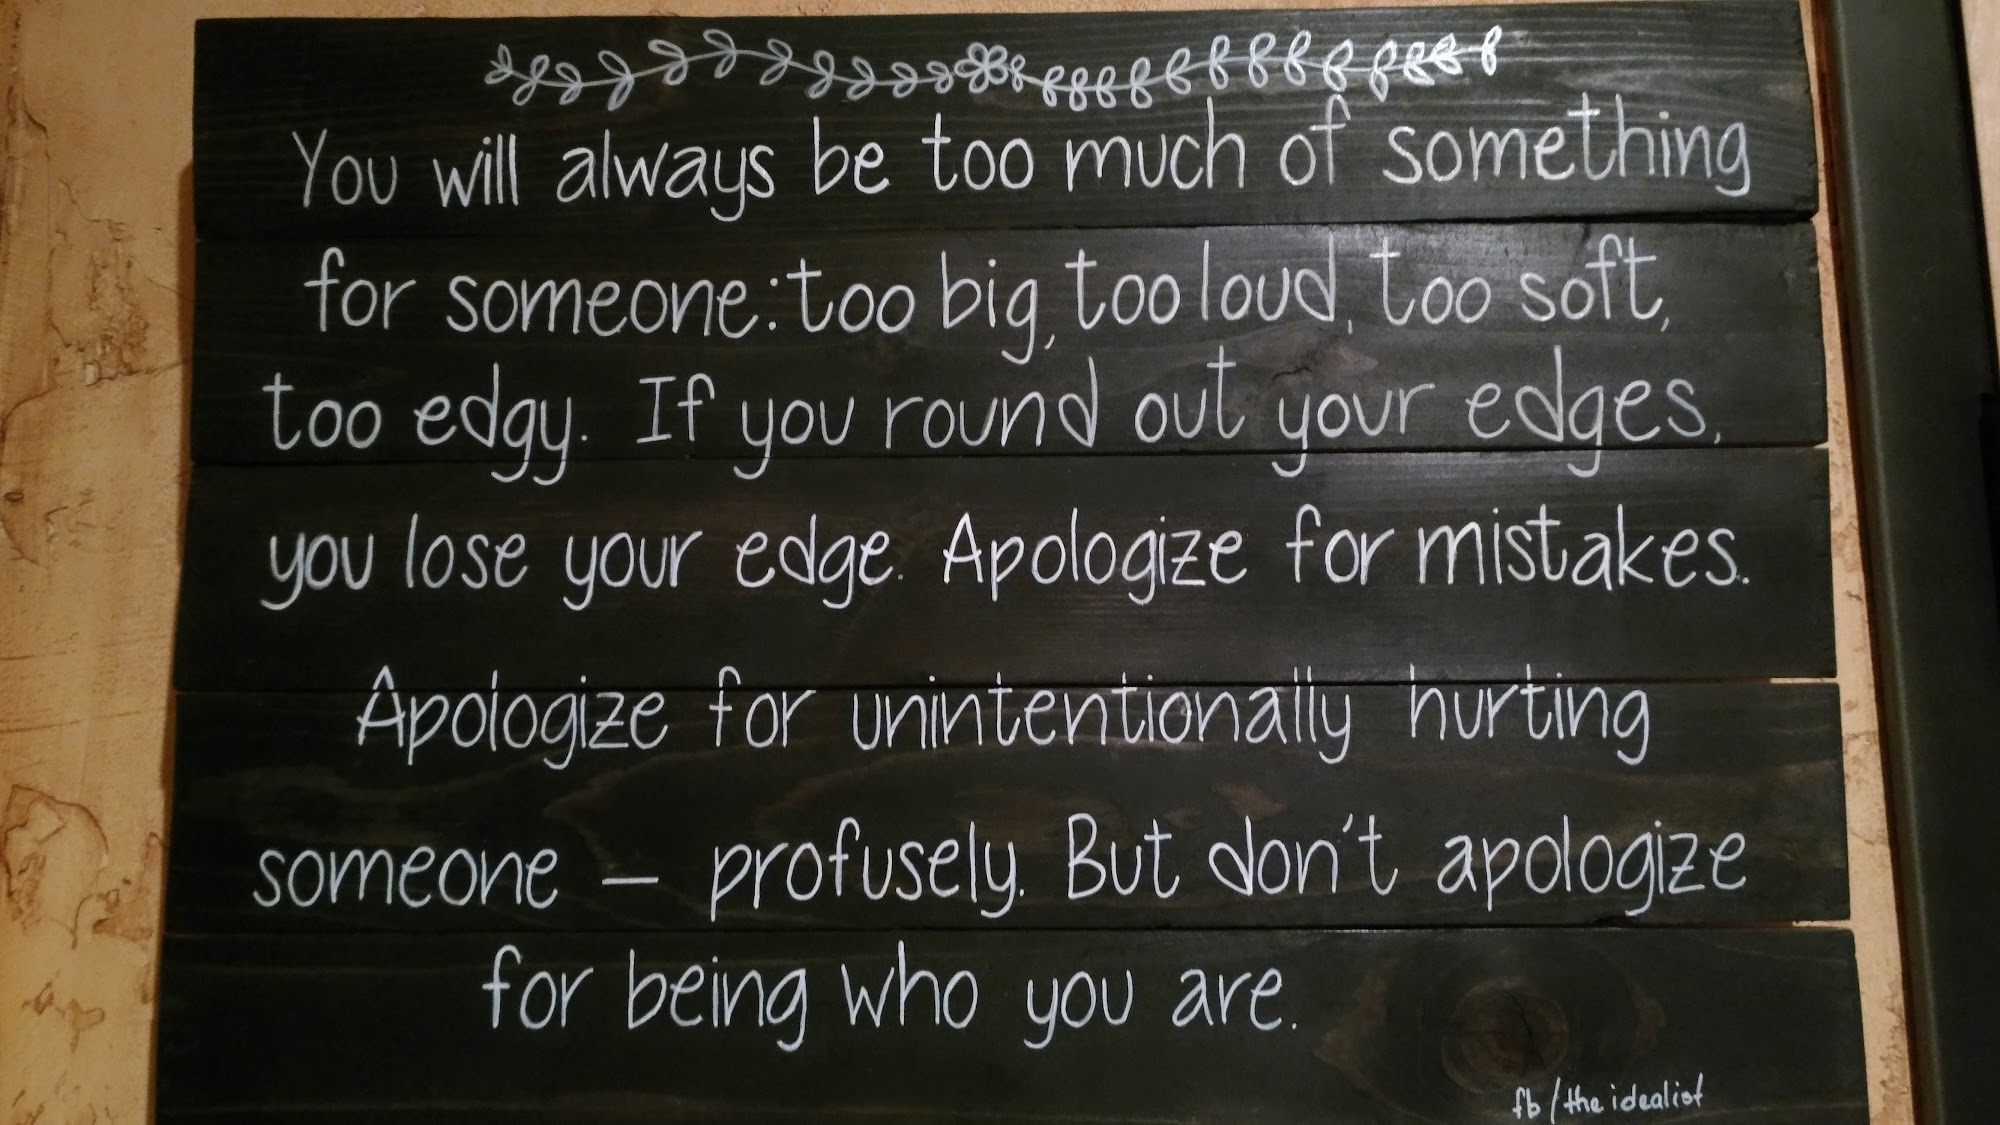 You will always be too much of something
for someone: too big, too loud, too soft,
too edgy. If you round out your edges,
you lose your edge. Apologize for mistakes.
Apologize for unintentionally hurting
someone — profusely. But don't apologize
for being who you are.
fb/the idealist